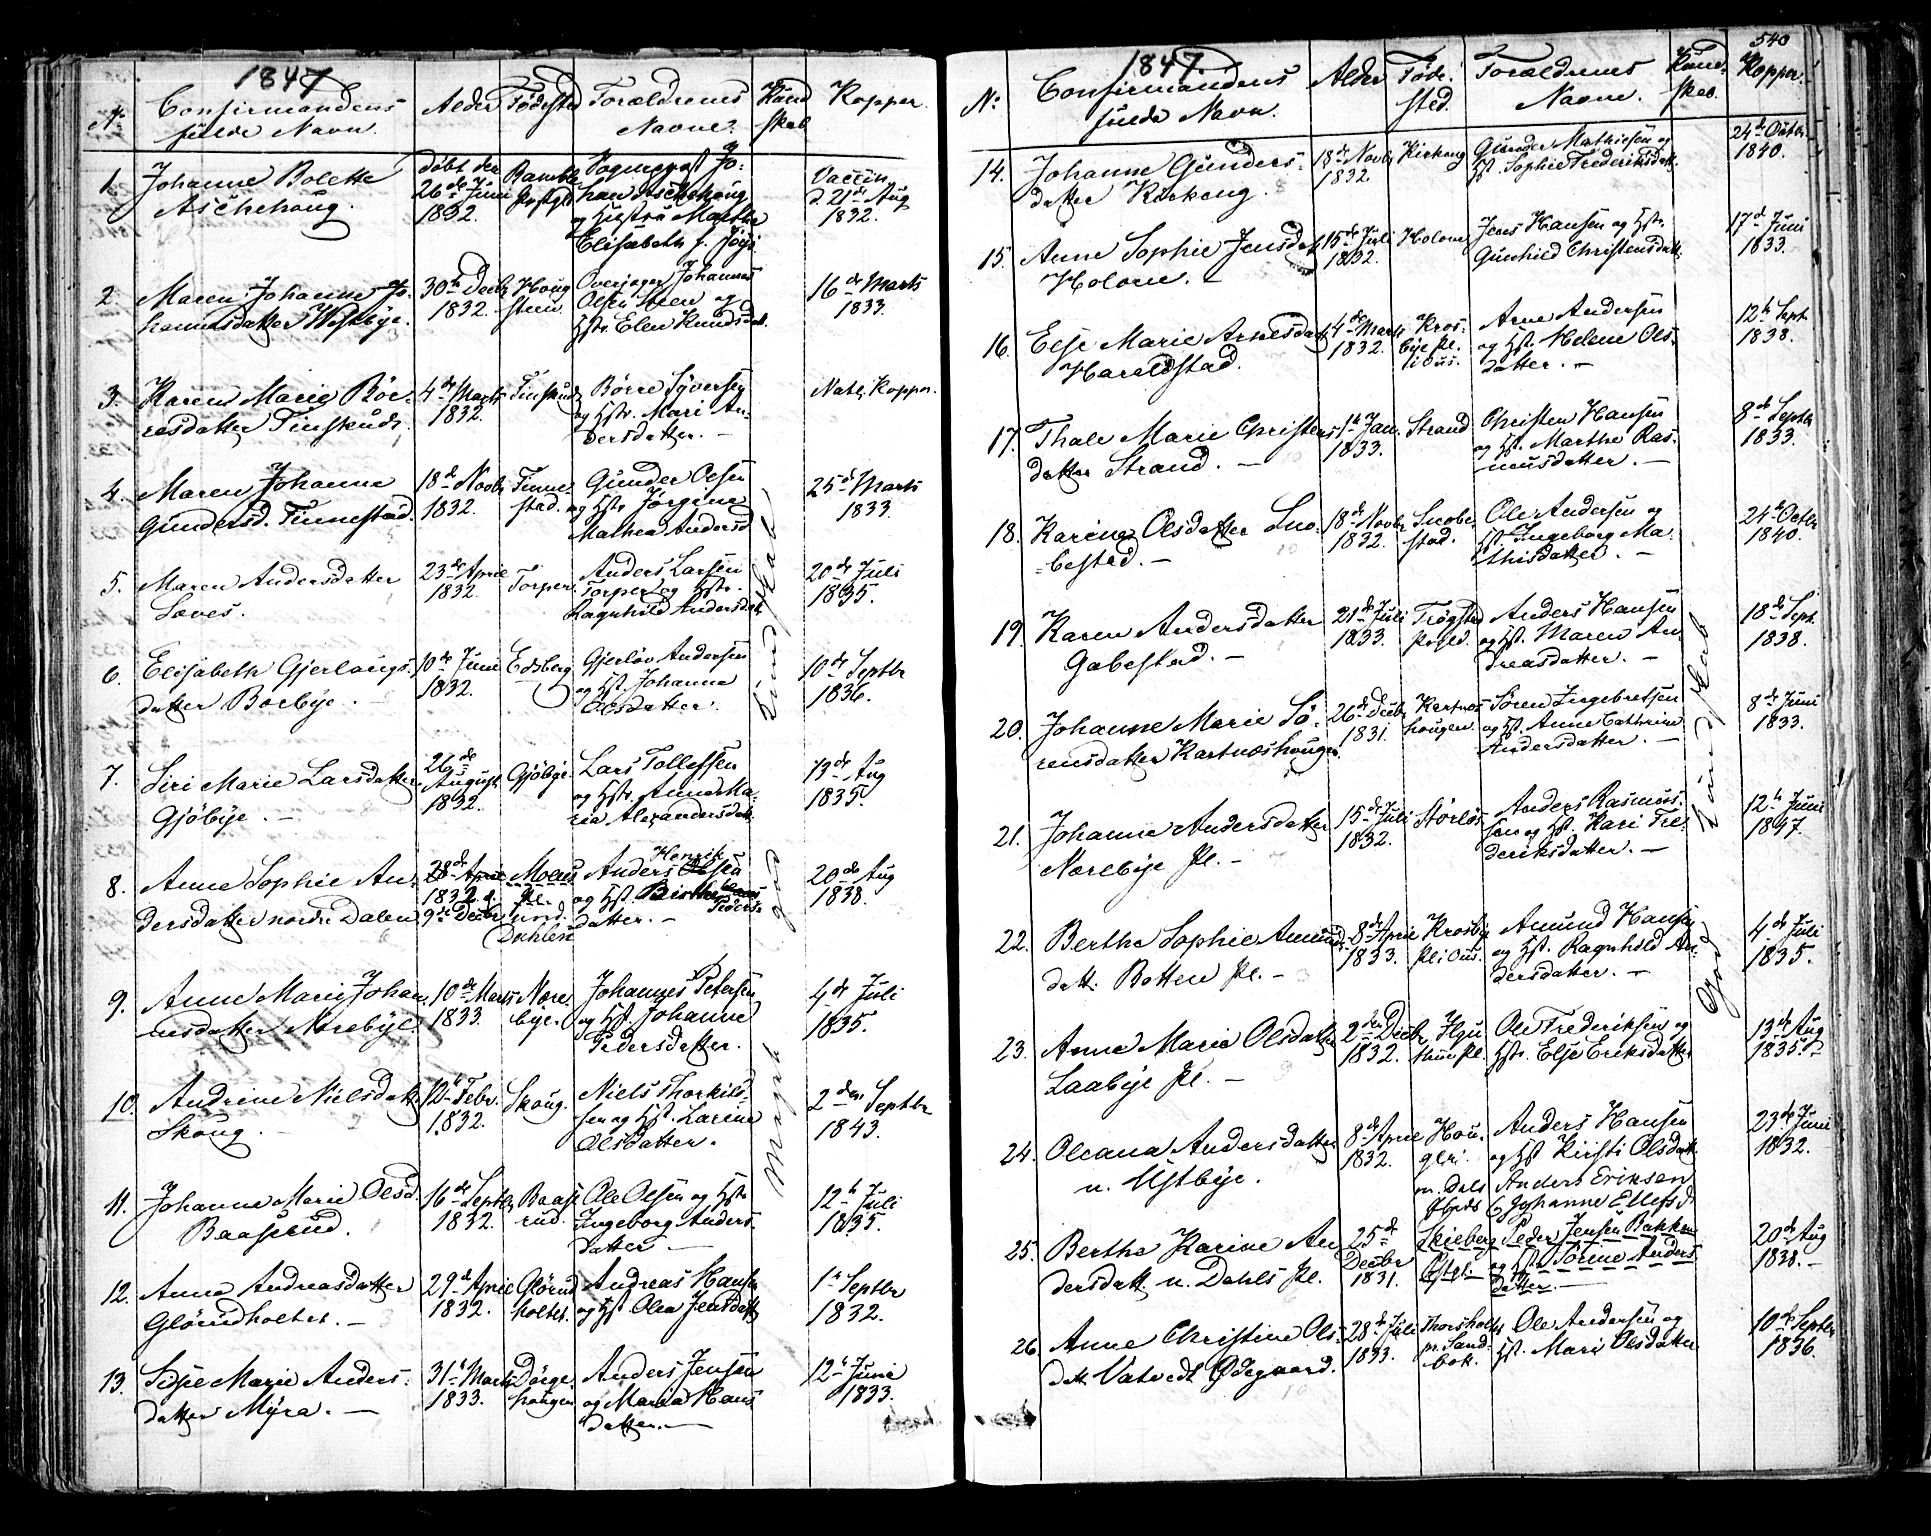 1847
N.
Confirmandens fulde Navn.
Alder
Fødested
Forældrenes Navne.
Kundskab
Kopper.
1. Johanne Bolette
Aschehoug.
døbt den
26de Juni
1832.
Bamble
Pstgld
Sognepræst Jo-
han Aschehoug
og Hustru Marthe
Elisabeth f.
Vaccin.
d. 21de Aug
1832.
2. Maren Johanne Jo-
hannesdatter Westbye.
30te Decbr
1832.
Houg
steen.
Overjæger Johannes
Olsen Steen og
Hstr. Elen Knudsdat.
16de Marts
1833.
3. Karen Marie Bør-
resdatter Finskud.
4de Marts
1832.
Finskud
Børre Syversen
og Hstr. Mari An-
dersdatter. —
Natl. Kopper.
4. Maren Johanne
Gundersd. Finnestad.
18de Novbr
1832.
Finne-
stad.
Gunder Olsen
og Hstr Jørgine
Mathea Andersd
25de Marts
1833.
5. Maren Andersdatter
Løves.
23de April
1832.
Torper.
Anders Larsen
Torper og Hstr.
Ragnhild Andersdat
20de Juli
1835.
6. Elisabeth Gjerlaugs-
datter Borbye.
10de Juni
1832.
Edsberg
Gjerløv Andersen
og Hst. Johanne
Olsdatter.
10de Septbr
1836.
7. Siri Marie Larsdatter
Gjøbye. —
26de
August
1832.
Gjøbye.
Lars Tollefsen
og Hstr. Anne Ma-
ria Alexandersdatt
13de Aug
1835.
8. Anne Sophie An-
dersdatter nordre Dalen
28de April
1832
9de Decbr
Moens
Pl.
nord.
Dahlen
Henrik
Anders Olsen
og Hst. Berthe
Peders-
datter. —
20de Aug
1838.
9. Anne Marie Johan-
nesdatter Nærebye.
10de Marts
1833.
Nære-
bye.
Johannes Petersen
og Hst. Johanne
Pedersdatter.
4de Juli
1835.
10. Andrine Nielsdatt
Skoug. —
12te Febr.
1832.
Skoug.
Niels Thorkild-
sen og Hst. Karine
Olsdatter.
2den Septbr
1843.
11. Johanne Marie Olsd.
Baaserud.
16de Septbr
1832.
Baase
rud.
Ole Olsen og Hstr
Ingeborg Anders-
datter —
12te Juli
1835.
12. Anna Andreasdatter
Glørudholtet. —
29de April
1832.
Glørud
holtet.
Andreas Hansen
og Hst. Olea Jensdatt
1te Septbr
1832.
13. Marie Anders-
datter Myra. —
31te Marts
1833.
Dørge-
hougen
Anders Jensen
og Maria Hans
datter. —
12te Juni
1833.
Meget god Kundskab.
1847
540
N:
Confirmandens
fulde Navn.
Alder
Føde-
sted.
Forældrenes
Navne.
Kund-
skab.
Kopper.
14. Johanne Gunders-
datter Kirkeng.
18de Novbr
1832.
Kirkeng
Gunder Mathiesen og
Hst. Sophie Frederiksdatt.
24de Octbr.
1840.
15. Anne Sophie Jensdat
Holom. —
15de Juli
1832.
Holom
Jens Hansen og Hstr.
Gunhild Christensdatt.
17de Juni
1833.
16. Else Marie Arnesdatt
Haraldstad.
4de Marts
1832.
Kros-
bye Pl.
i Ous.
Arne Andersen
og Hst. Helene Ols-
datter. —
12te Septr.
1838.
17. Thale Marie Christens
datter Strand. —
1te Jan.
1833.
Strand
Christen Hansen
og Hst. Marthe Ras-
musdatter. —
8de Septbr
1833.
18. Karine Olsdatter Sno-
bestad. —
18de Novbr
1832.
Snobe-
stad.
Ole Andersen og
Hst. Ingeborg Ma-
thisdatter. —
24de Octbr
1840.
19. Karen Andersdatter
Gabestad. —
21de Juli
1833.
Trøgstad
Pstgld.
Anders Hansen
og Hst. Maren An-
dreasdatter. —
18de Sept.
1838.
20. Johanne Marie Sø-
rensdatter Kartnæshougen.
26de Decbr
1831.
Kartnæs
hougen.
Søren Ingebretsen
og Hst. Anne Cathrine
Andersdatter. —
8de Juni
1833.
21. Johanne Andersdatter
Nærebye Pl. —
15de Juli
1832.
Anders Rasmus-
sen og Hst. Kari Fre-
deriksdatter. —
12te Juni
1847.
22. Berthe Sophie Amunds-
datt. Botten Pl. —
8de April
1833.
Krosbye
Pl. i Ous.
Amund Hansen
og Hst. Ragnhild An-
dersdatter. —
4de Juli
1835.
23. Anne Marie Olsdatter
Laabye Pl. —
2den Decbr
1832.
Pl.
Ole Frederiksen og
Hstr. Else Eriksdatter
13de Aug
1835. —
24. Oleana Andersdatter
n. Ustbye.
8de April
1832.
Anders Hansen
og Hst Kirsti Olsdatt.
23de Juni
1832.
n. Dals
Anders Eriksen
Johanne Ellefsd.
25. Berthe Karine An-
dersdatt. n. Dahls Pl.
25de
Decbr
1831.
Skieberg
Pstgl.
Peder Jensen Bakken
og Hst. Sørine Anders
datter. —
20de Aug
1838. —
26. Anne Christine Ols-
datt. Vatvedt Ødegaard.
28de Juli
1833.
Thorsholt
pr. Sand-
bok.
Ole Andersen og
Hst. Mari Olsdatter
10de Septbr
1836.
God Kundskab